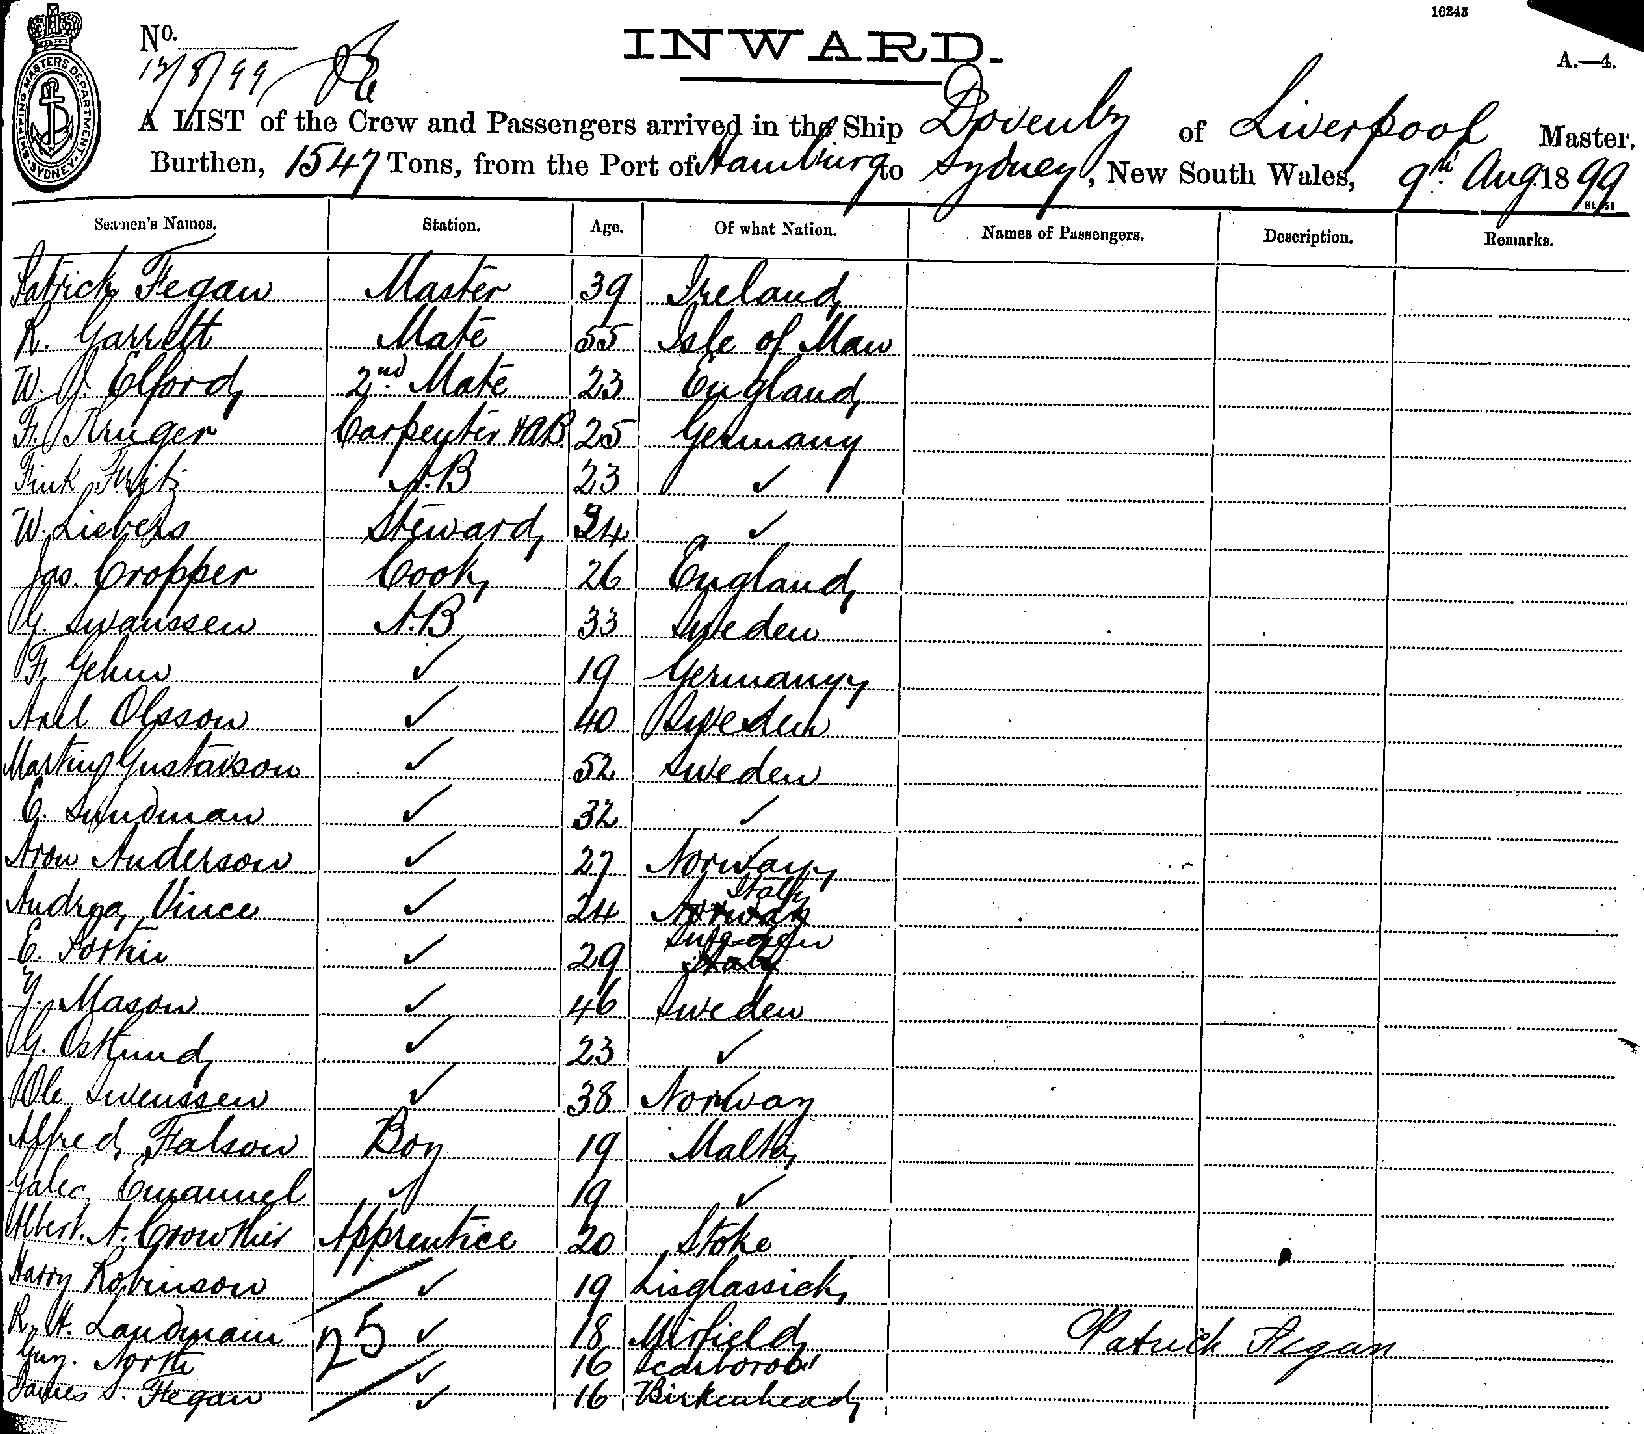 16243
No.
INWARD.
A.—4.
12/8/99
A LIST of the Crew and Passengers arrived in the Ship Dovenby of Liverpool Master,
Burthen, 1547 Tons, from the Port of Hamburg to Sydney, New South Wales, 9th Aug 1899
Seamen's Names. Station. Age. Of what Nation. Names of Passengers. Description. Remarks.
Patrick Fegan Master 39 Ireland
R. Garrett Mate 55 Isle of Man
W. J. Elford 2nd Mate 23 England
F. Kruger Carpenter & AB 25 Germany
Fink Fritz A.B 23 ✓
W. Liebers Steward 34 ✓
Jas. Cropper Cook 26 England
G. Swanssen A.B 33 Sweden
F. Gehm ✓ 19 Germany
Axel Olsson ✓ 40 Sweden
Martin Gustavson ✓ 52 Sweden
C. Sundman ✓ 32 ✓
Aron Anderson ✓ 27 Norway
Andrea Vince ✓ 24 Norway Italy
E. ✓ 29 Sweden Italy
Y. Mason ✓ 46 Sweden
G. Ostlund ✓ 23 ✓
Ole Swenssen ✓ 38 Norway
Alfred Falson Boy 19 Malta
Galea Emanuel ✓ 19 ✓
Albert. A. Crowther Apprentice 20 Stoke
Harry Robinson ✓ 19 Lisglassick
R. H. Landmain 25 ✓ 18 Mirfield Patrick Fegan
Guy. North ✓ 16 Scarboro'
James S. Fegan ✓ 16 Birkenhead